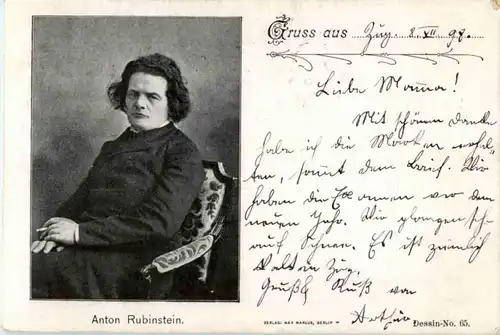 Gruss aus Zug. 8. XII 98.
Liebe Mama!
Mit schönem Danke
habe ich die Marken erhal-
ten, sammt dem Brief. Wir
haben die Examen vor dem
neuen Jahr. Wir plangen sch
auf Schnee. Es ist ziemlich
kalt in Zug.
Gruß Kuß von
Arthur
Anton Rubinstein.
VERLAG: MAX MARCUS, BERLIN W
Dessin-No. 65.